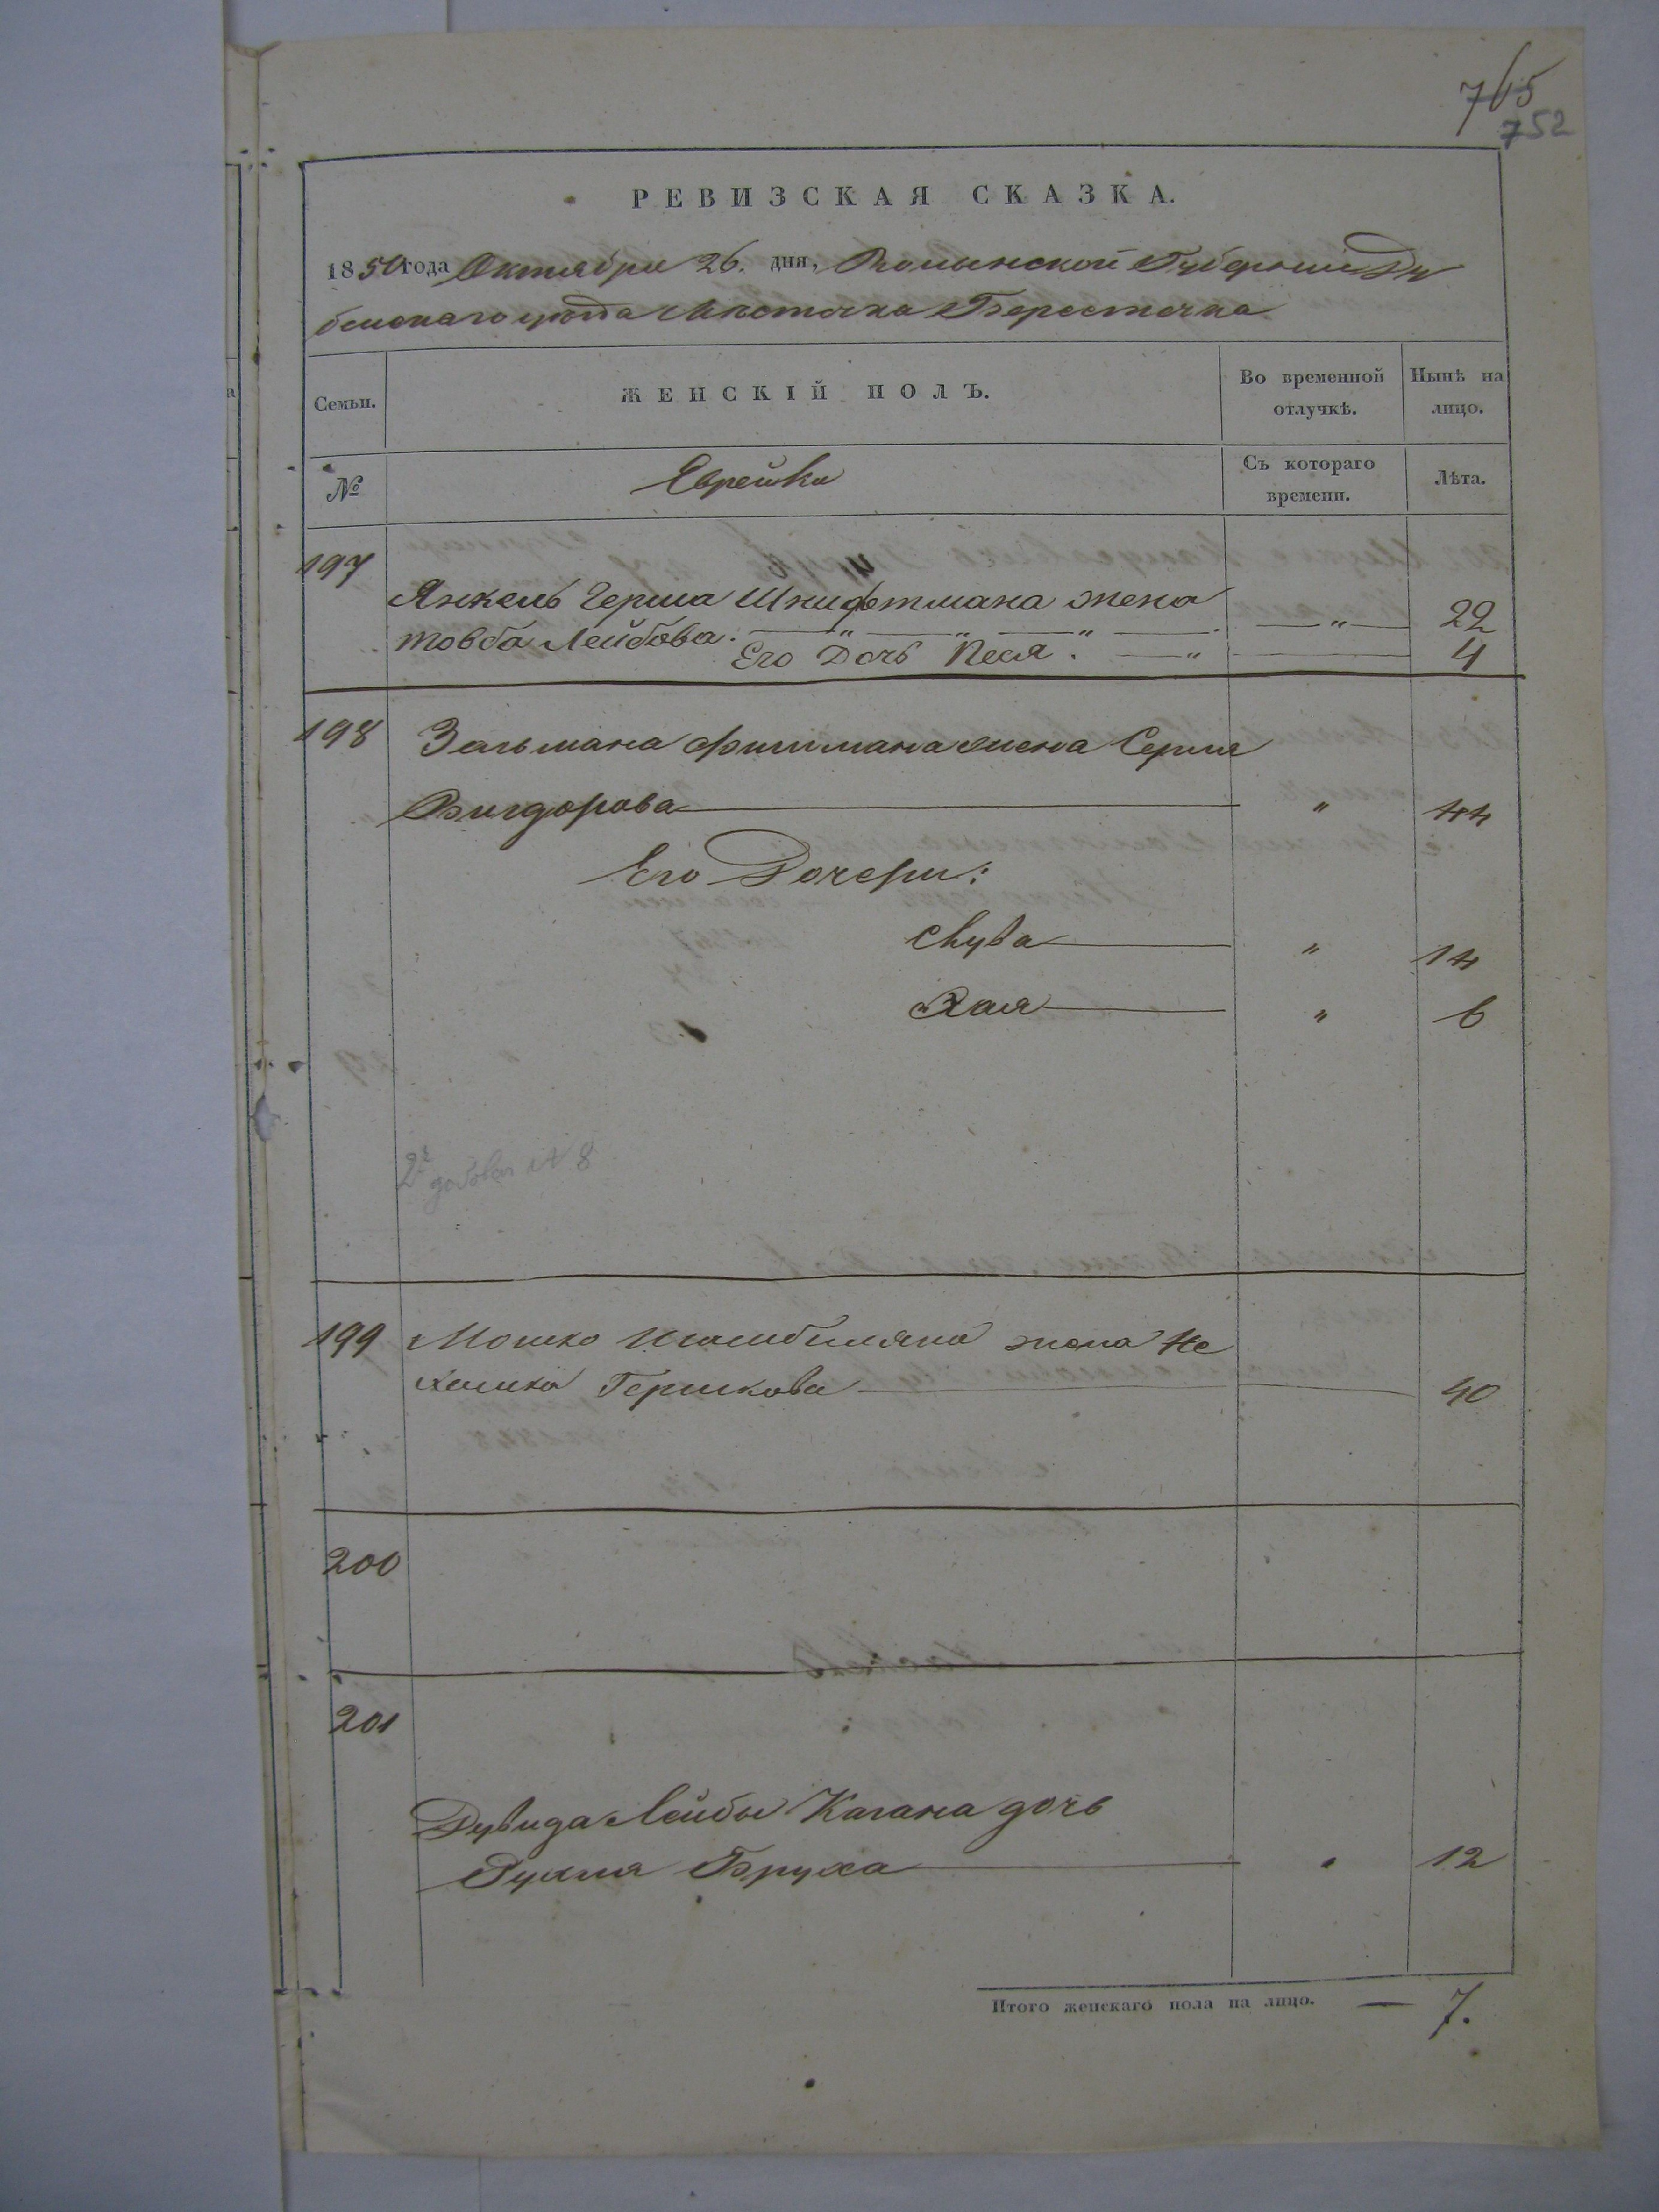 765
752
РЕВИЗСКАЯ СКАЗКА.
1850 года Октября 26. дня, Волынской Губернии Ду
бенскаго уезда Местечка Берестечка
Семьи. ЖЕНСКІЙ ПОЛЪ. Во временной отлучкѣ. Нынѣ на лицо.
№ Еврейки Съ котораго времени. Лѣта.
197
Янкель Герша Шнифтмана жена
товба Лейбова. — " — " — " — — " — 22
Его Дочь Песя. — " — 4
198 Зельмана Фишмана жена Серля
Вигдорова " 44
Его Дочери:
Чува " 14
Хая " 6
2я добавоч № 8
199 Мошко жена Не
Гершкова 40
200
201
Дувида Лейбы Кагана дочь
Рухля Бруха " 12
Итого женскаго пола на лицо. — 7.